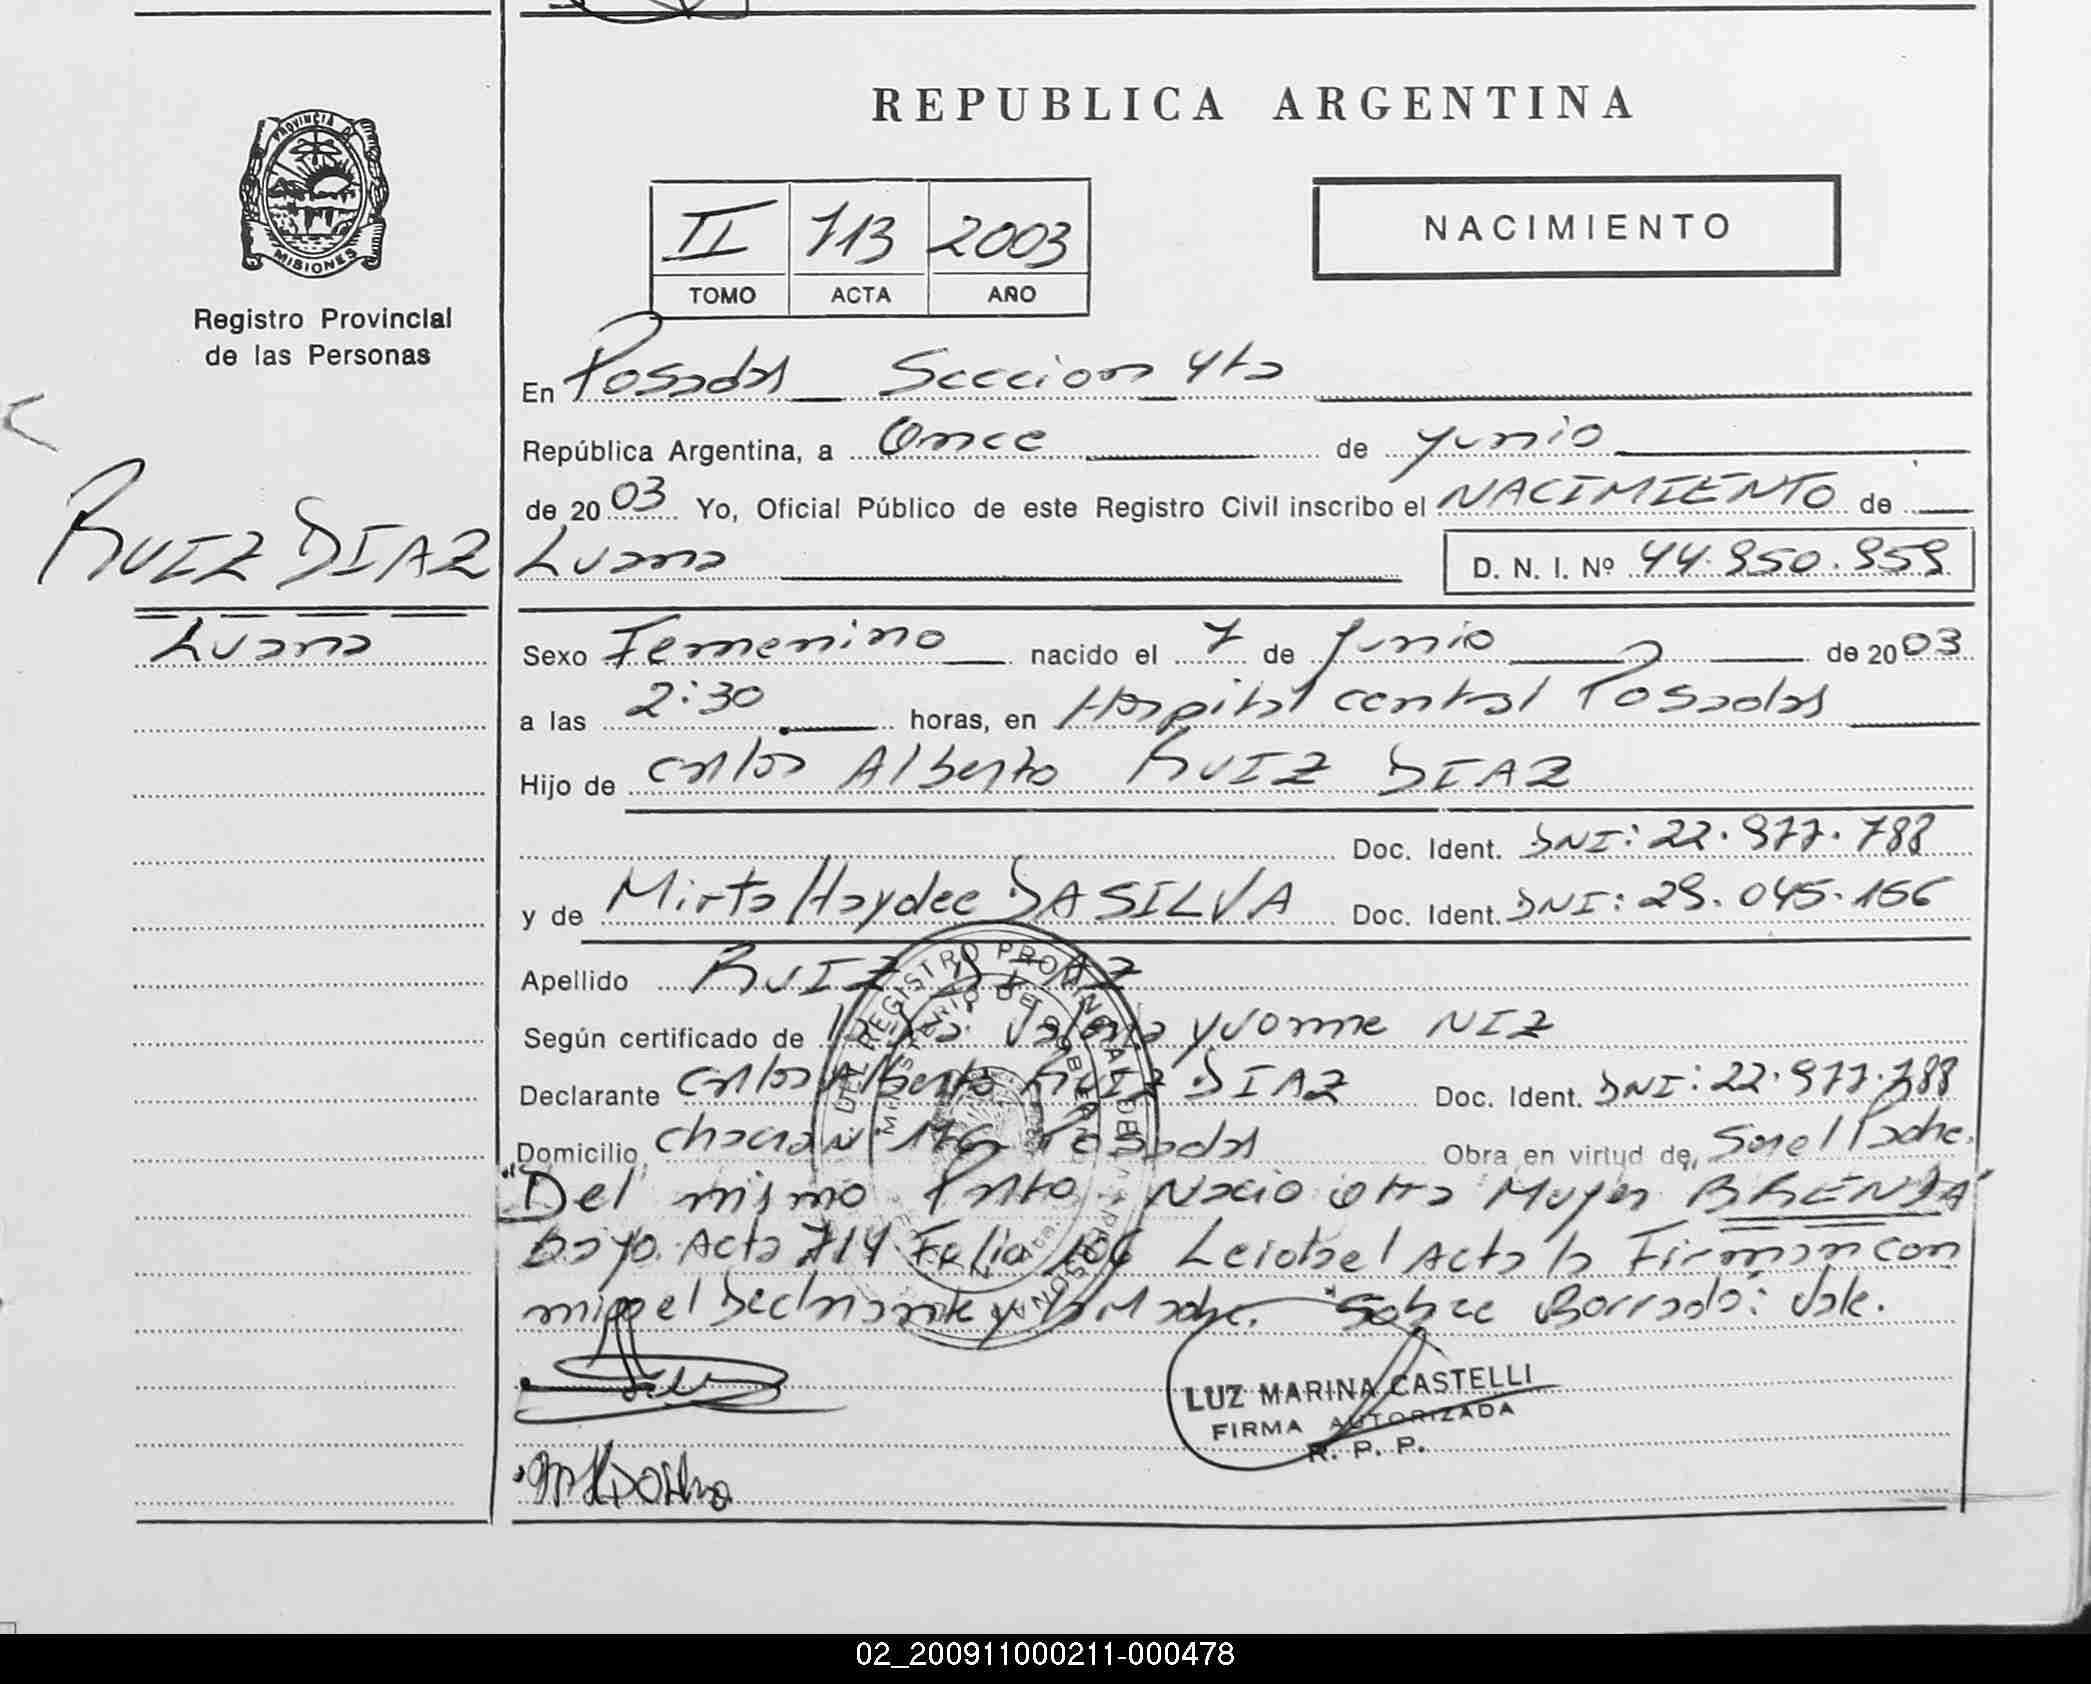 REPUBLICA ARGENTINA
PROVINCIA DE
MISIONES
Registro Provincial
de las Personas
II 713 2003
TOMO ACTA AÑO
NACIMIENTO
En Posadas Seccion 4ta
República Argentina, a Once de Junio
de 2003 Yo, Oficial Público de este Registro Civil inscribo el NACIMIENTO de
RUIZ DIAZ
Luana
Luana D. N. I. Nº 44.950.959
Sexo Femenino nacido el 7 de Junio de 2003
a las 2:30 horas, en Hospital central Posadas
Hijo de Carlos Alberto RUIZ DIAZ
Doc. Ident. DNI: 22.977.788
y de Mirta Haydee DA SILVA Doc. Ident. DNI: 29.045.156
Apellido RUIZ DIAZ
Según certificado de Yvonne NIZ
Declarante Carlos Alberto RUIZ DIAZ Doc. Ident. DNI: 22.977.788
Domicilio 176 Posadas Obra en virtud de, Ser el Padre.
"Del mismo Parto Nacio otra Mujer BRENDA"
bajo Acta 714 Folio 106 Leida el Acta la Firman con
migo el Declarante y la Madre. "Sobre Borrado: Vale.
LUZ MARINA CASTELLI
FIRMA AUTORIZADA
R. P. P.
02_200911000211-000478